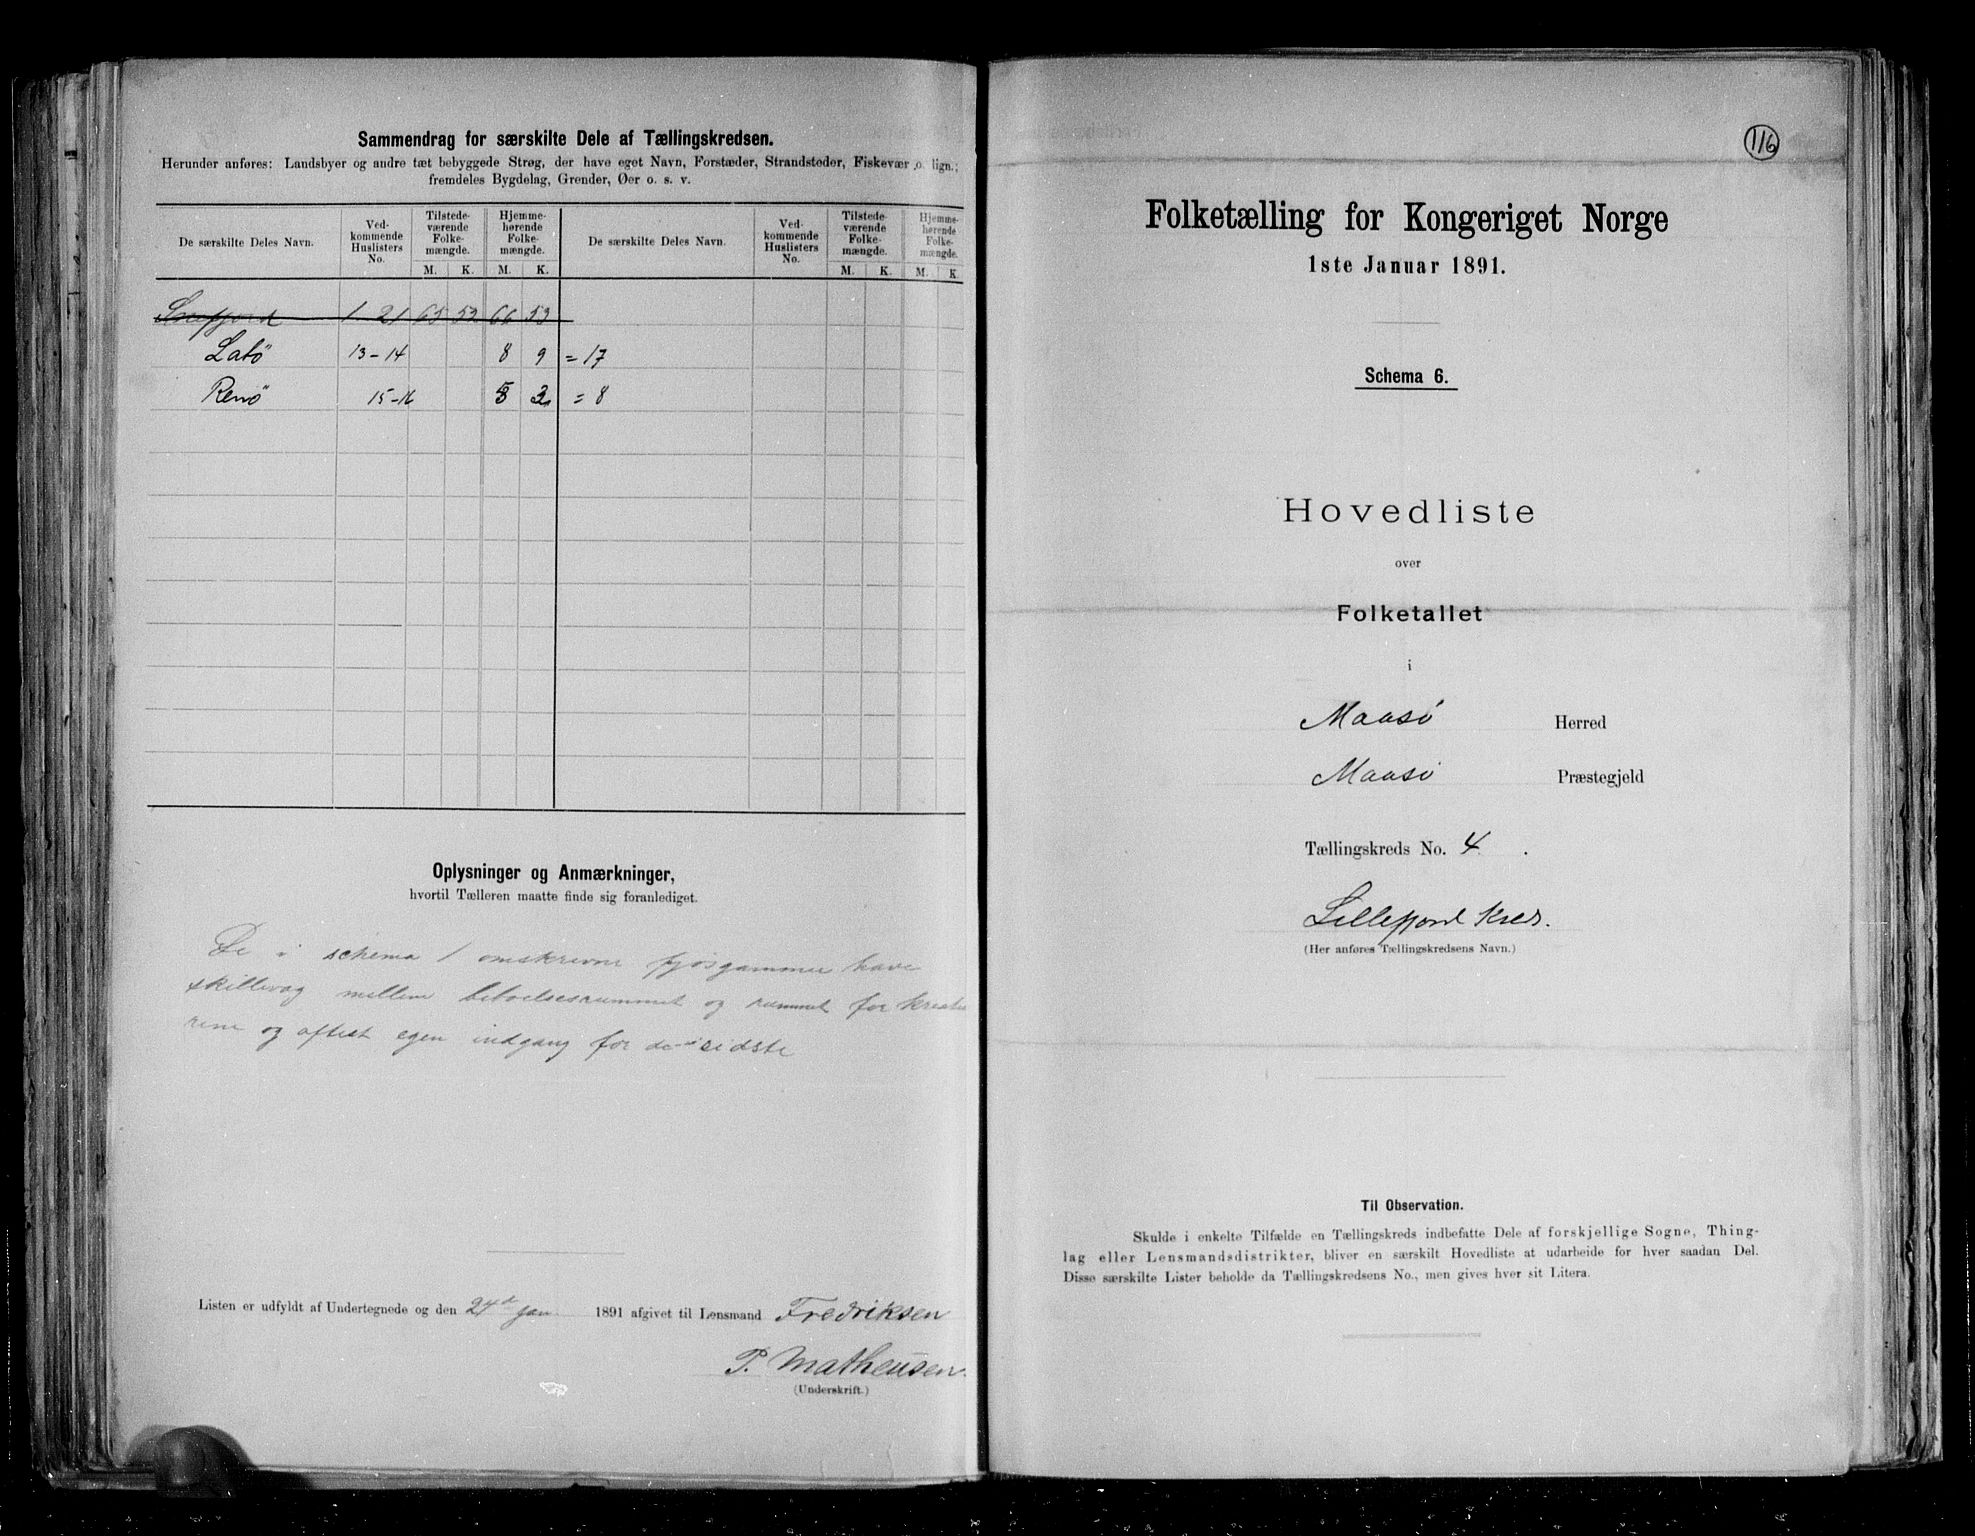 Sammendrag for særskilte Dele af Tællingskredsen.
Herunder anføres: Landsbyer og andre tæt bebyggede Strøg, der have eget Navn, Forstæder, Strandsteder, Fiskevær o. lign.;
fremdeles Bygdelag, Grender, Øer o. s. v.
De særskilte Deles Navn. Ved-kommende Huslisters No. Tilstede-værende Folke-mængde. Hjemme-hørende Folke-mængde. De særskilte Deles Navn. Ved-kommende Huslisters No. Tilstede-værende Folke-mængde. Hjemme-hørende Folke-mængde.
M. K. M. K. M. K. M. K.
Snefjord 1 21 65 52 66 53
Latö 13-14 8 9 = 17
Renö 15-16 5 = 8
Oplysninger og Anmærkninger,
hvortil Tælleren maatte finde sig foranlediget.
De i schema 1 omskrevne fjøsgammer have
skillevæg mellem beboelsesrummet og rummet for kreatu
rene og oftest egen indgang for de sidste
Listen er udfyldt af Undertegnede og den 24d jan. 1891 afgivet til Lensmand Fredriksen
P. Matheusen.
(Underskrift.)
116
Folketælling for Kongeriget Norge
1ste Januar 1891.
Schema 6.
Hovedliste
over
Folketallet
i
Maasö Herred
Maasö Præstegjeld
Tællingskreds No. 4.
Lillefjord Kreds.
(Her anføres Tællingskredsens Navn.)
Til Observation.
Skulde i enkelte Tilfælde en Tællingskreds indbefatte Dele af forskjellige Sogne, Thing-
lag eller Lensmandsdistrikter, bliver en særskilt Hovedliste at udarbeide for hver saadan Del.
Disse særskilte Lister beholde da Tællingskredsens No., men gives hver sit Litera.